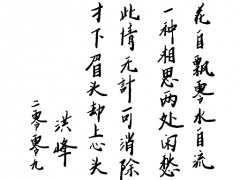 花自飘零水自流
一种相思两处闲愁
此情无计可消除
才下眉头却上心头
洪峰
二零零九